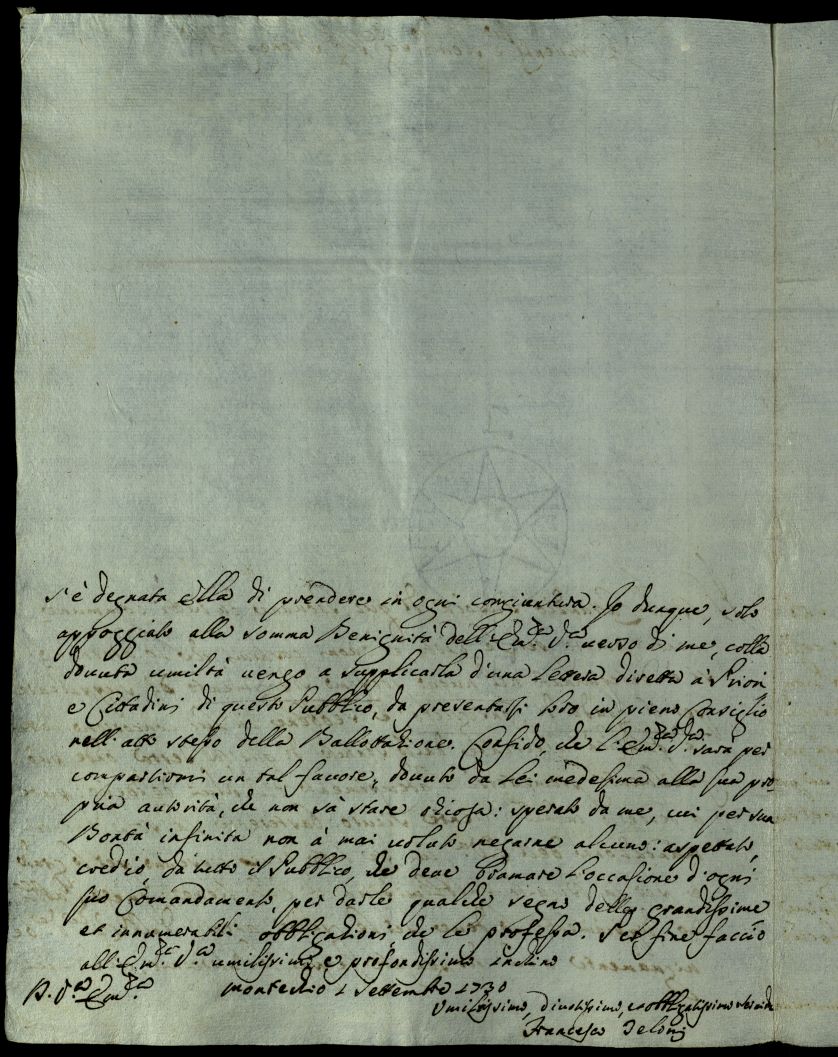 s'è degnata ella di prendere in ogni congiuntura. Io dunque, solo
appoggiato alla somma Benignità dell'Em.za V.ra verso di me, colla
dovuta umiltà vengo a supplicarla d'una Lettera diretta a' Priori
e Cittadini di questo Pubblico, da presentarsi loro in pieno Consiglio
nell'atto stesso della Ballottazione. Confido, che l'Em.za V.ra sarà per
compartirmi un tal favore, dovuto da Lei medesima alla sua pro-
pria autorità, che non sà stare oziosa: sperato da me, cui per sua
Bontà infinita non à mai voluto negarne alcuno: aspettato,
cred'io, da tutto il Pubblico, che deve bramare l'occasione d'ogni
suo Comandamento, per darle qualche segno delle grandissime
et innumerabili obbligazioni, che le professa. Per fine faccio
all'Em.za V.ra umilissimo e profondissimo inchino
D. V.ra Em.za
Montecchio 1 Settembre 1730
Umilissimo, Divotissimo, et obbligatissimo
Francesco